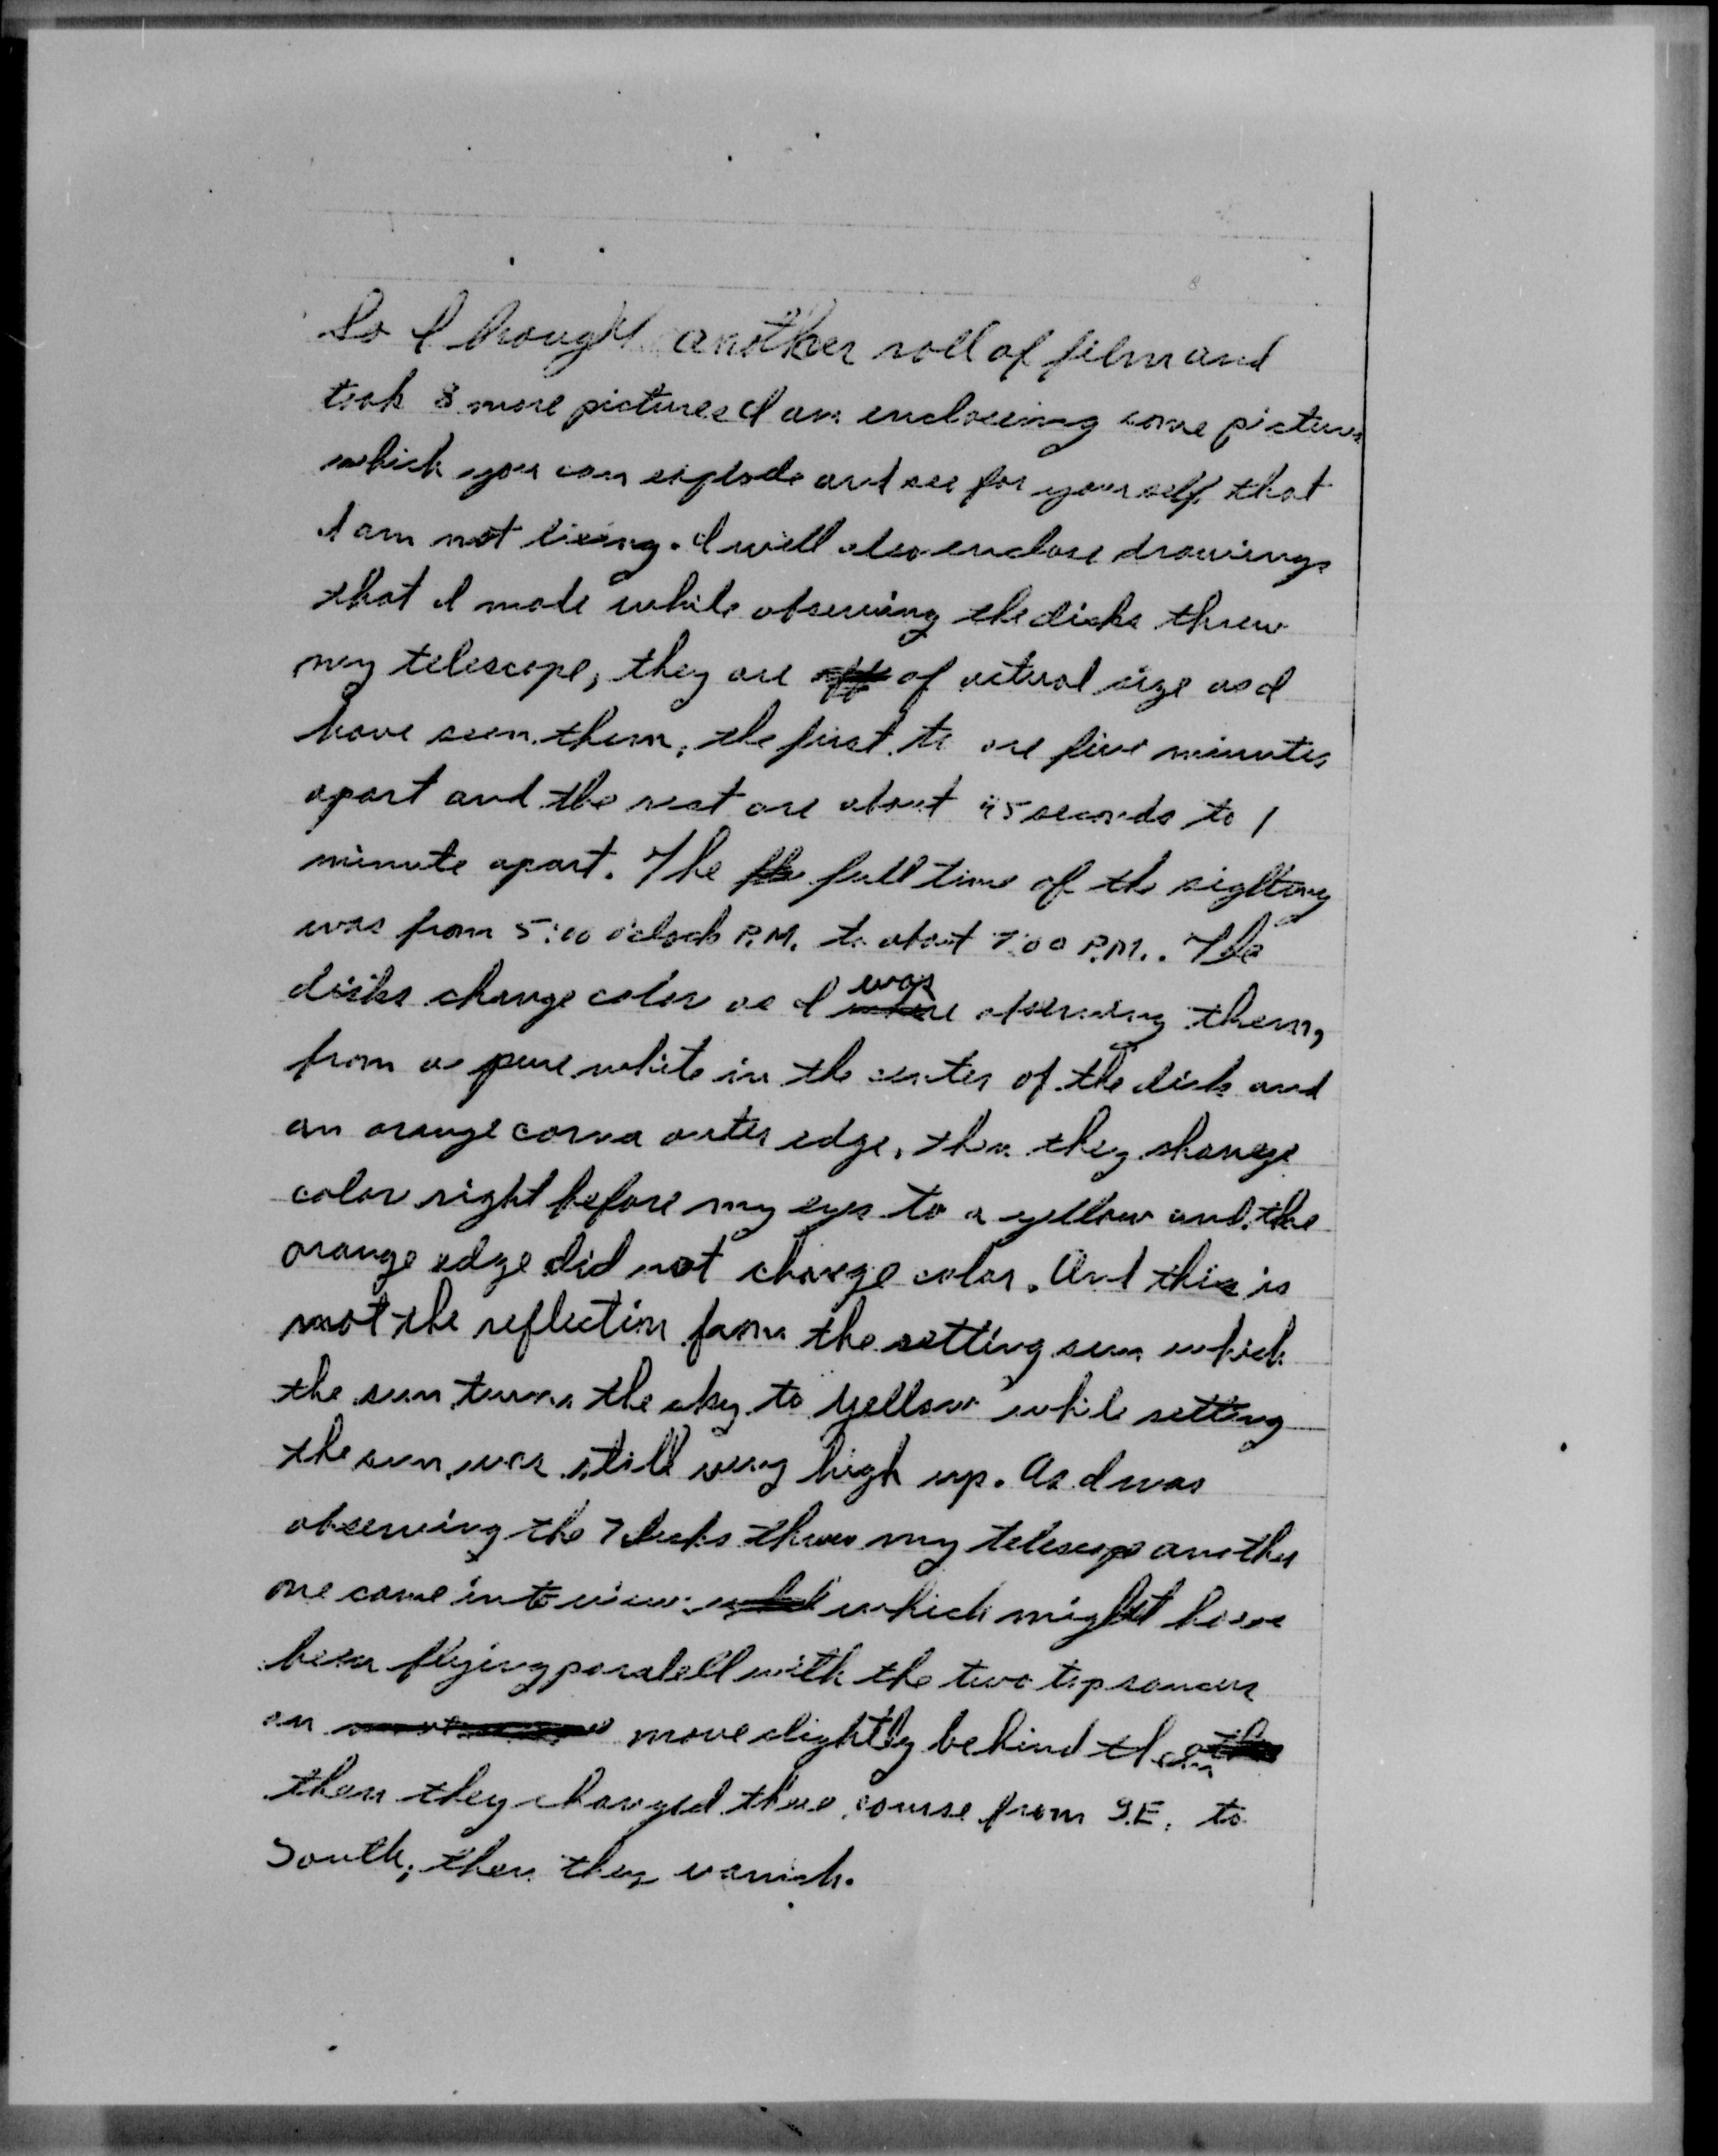 So I bought another roll of film and
took 8 more pictures I am enclosing some pictures
which you can explode and see for yourself that
I am not lieing. I will also enclose drawings
that I made while observing the disks threw
my telescope, they are of actual size as I
have seen them, the first to are five minutes
apart and the rest are about 45 seconds to 1
minute apart. The full time of the sighting
was from 5:00 o'clock P.M. to about 7:00 P.M.. The
disks change color as I was observing them,
from a pure white in the center of the disk and
an orange corna outer edge, then they change
color right before my eyes to a yellow and the
orange edge did not change color. And this is
not the reflection from the setting sun which
the sun turns the sky to yellow while setting
the sun was still very high up. As I was
observing the 7 disks threw my telescope another
one came into view which might have
been flying paralell with the two top saucers
an move slightly behind them
then they changed there course from S.E. to
South, then they vanish.